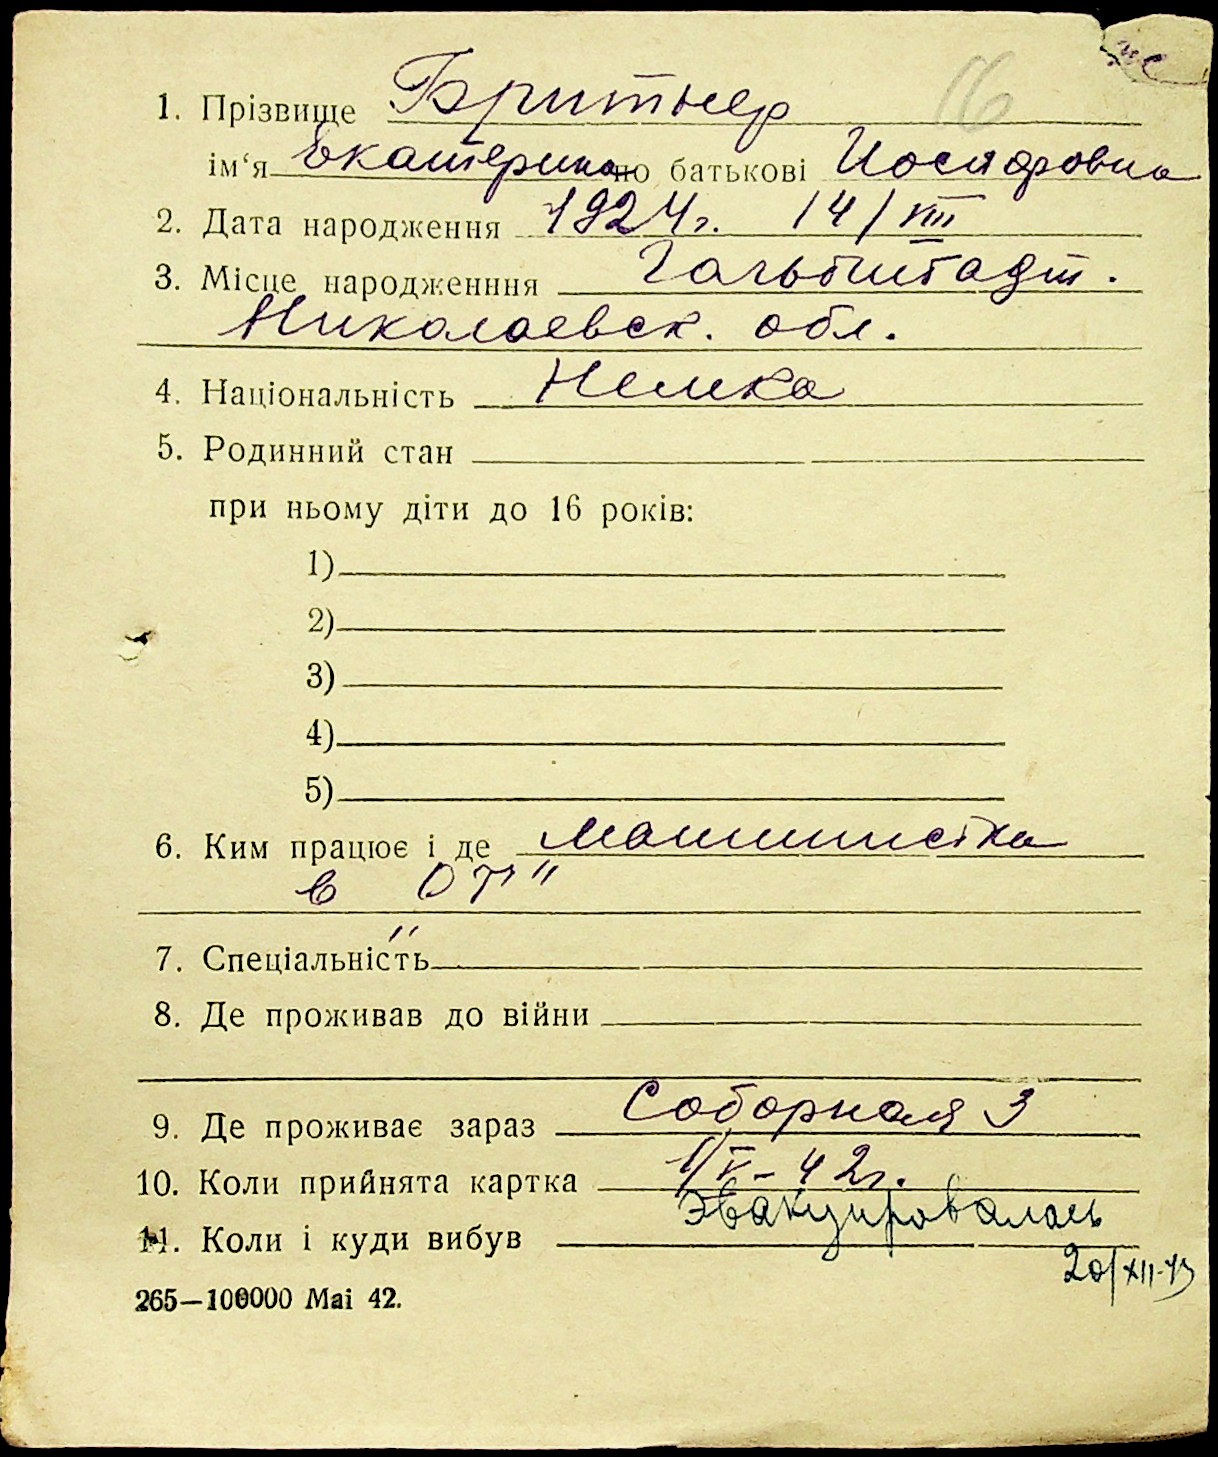 16
1. Прізвище Бритнер
ім‘я Екатерина по батькові Иосифовна
2. Дата народження 1924 г. 14/VIII
3. Місце народженння Гальбштадт.
Николаевск. обл.
4. Національність Немка
5. Родинний стан
при ньому діти до 16 років:
1)
2)
3)
4)
5)
6. Ким працює і де машинистка
в "ОТ"
7. Спеціальність
8. Де проживав до війни
9. Де проживає зараз Соборная 3
10. Коли прийнята картка 1/V-42г.
11. Коли і куди вибув Эвакуировалась
20/XII-43
265—100000 Mai 42.